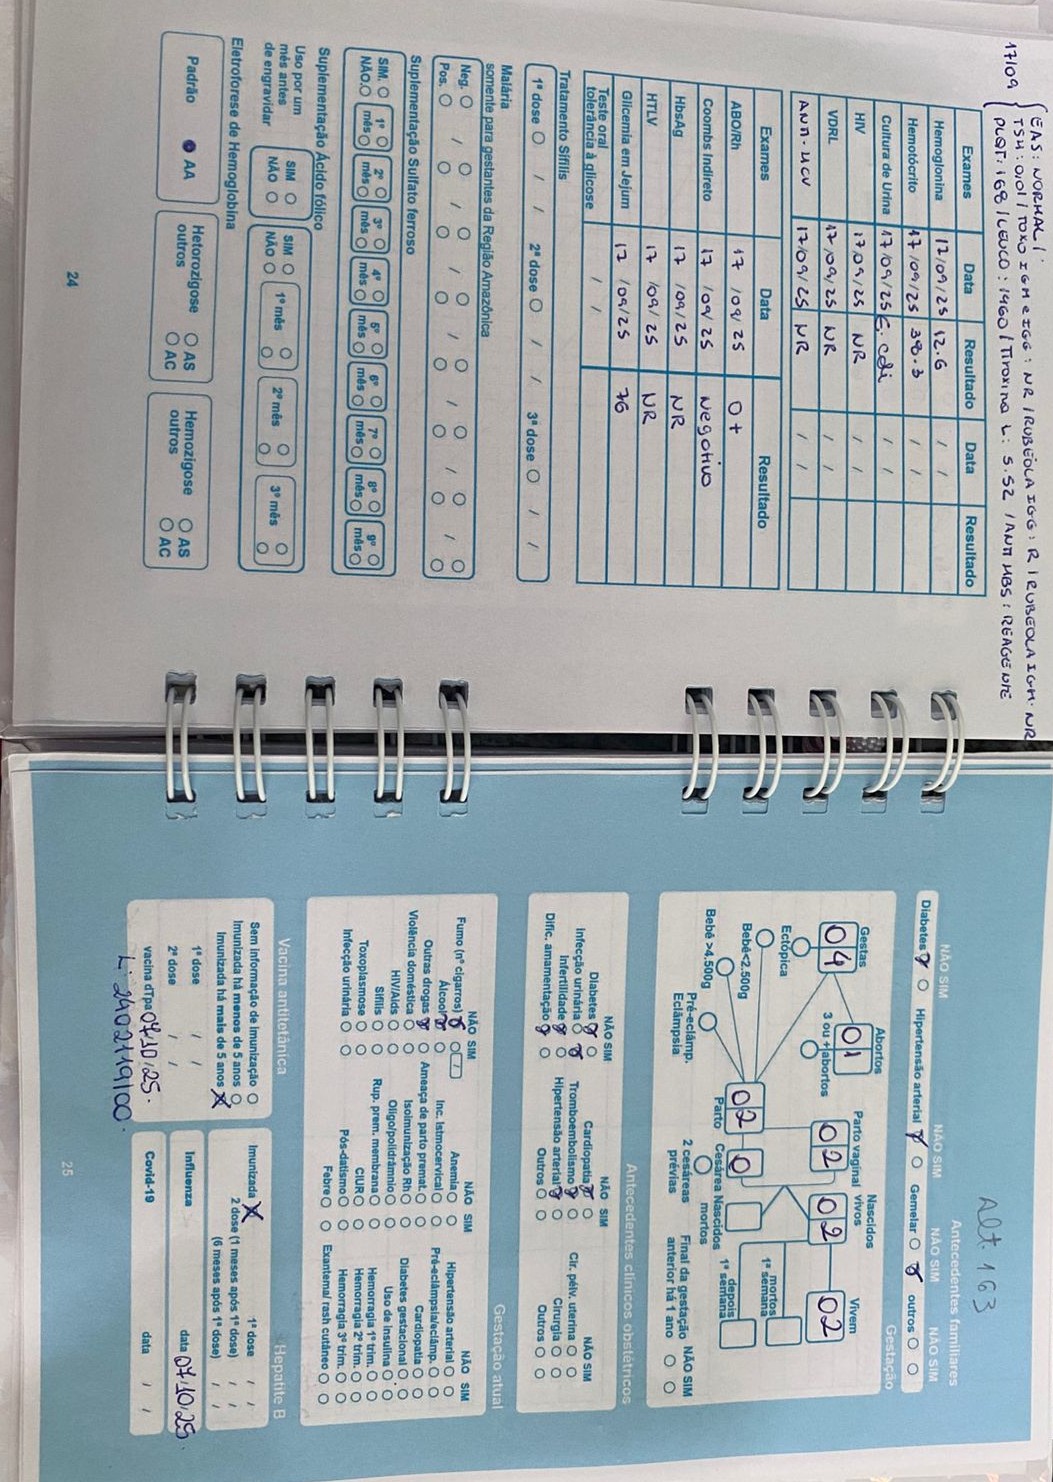 17/09 { EAS: NORMAL /
TSH: 0,01 / TOXO IGM e IGG: NR / RUBÉOLA IGG: R / RUBEOLA IGM: NR
PLQT: 168 / LEUCO: 1460 / Tiroxina L: 5.52 / ANTI HBS: REAGENTE
Exames Data Resultado Data Resultado
Hemoglonina 17/09/25 12.6 / /
Hemotócrito 17/09/25 38.3 / /
Cultura de Urina 17/09/25 E. coli / /
HIV 17/09/25 NR / /
VDRL 17/09/25 NR / /
ANTI-HCV 17/09/25 NR / /
Exames Data Resultado
ABO/Rh 17/09/25 O+
Coombs Indireto 17/09/25 Negativo
HbsAg 17/09/25 NR
HTLV 17/09/25 NR
Glicemia em Jejum 17/09/25 76
Teste oral
tolerância à glicose / /
Tratamento Sífilis
1ª dose / / 2ª dose / / 3ª dose / /
Malária
somente para gestantes da Região Amazônica
Neg. / / / / / / /
Pos.
Suplementação Sulfato ferroso
SIM. 1º 2º 3º 4º 5º 6º 7º 8º 9º
NÃO. mês mês mês mês mês mês mês mês mês
Suplementação Ácido fólico
Uso por um
mês antes
de engravidar
SIM SIM 1º mês 2º mês 3º mês
NÃO NÃO
Eletroforese de Hemoglobina
Padrão AA
Hetorozigose AS
outros AC
Hemozigose AS
outros AC
24
Alt. 163
Antecedentes familiares
NÃO SIM NÃO SIM NÃO SIM NÃO SIM
Diabetes Hipertensão arterial Gemelar outros
Gestação
Gestas 04
Abortos 01
3 ou + abortos
Parto vaginal 02
Nascidos vivos 02
Vivem 02
Ectópica
Bebê<2.500g
Bebê >4.500g
Pré-eclâmp.
Eclâmpsia
Parto 02
Cesárea 0
Nascidos mortos
mortos
1ª semana
depois
1ª semana
2 cesáreas
prévias
Final da gestação NÃO SIM
anterior há 1 ano
Antecedentes clínicos obstétricos
NÃO SIM NÃO SIM NÃO SIM
Diabetes Cardiopatia Cir. pélv. uterina
Infecção urinária Tromboembolismo Cirurgia
Infertilidade Hipertensão arterial Outros
Dific. amamentação Outros
Gestação atual
NÃO SIM NÃO SIM NÃO SIM
Fumo (nº cigarros) Anemia Hipertensão arterial
Álcool Inc. Istmocervical Pré-eclâmpsia/eclâmp.
Outras drogas Ameaça de parto premat. Cardiopatia
Violência doméstica Isoimunização Rh Diabetes gestacional
HIV/Aids Oligo/polidrâmnio Uso de insulina
Sífilis Rup. prem. membrana Hemorragia 1º trim.
Toxoplasmose CIUR Hemorragia 2º trim.
Infecção urinária Pós-datismo Hemorragia 3º trim.
Febre Exantema/ rash cutâneo
Vacina antitetânica
Sem informação de imunização
Imunizada há menos de 5 anos
Imunizada há mais de 5 anos X
1ª dose / /
2ª dose / /
vacina dTpa 07.10.25.
Hepatite B
Imunizada X 1ª dose / /
2ª dose (1 meses após 1ª dose) / /
(6 meses após 1ª dose) / /
Influenza data 07.10.25.
Covid-19 data / /
25